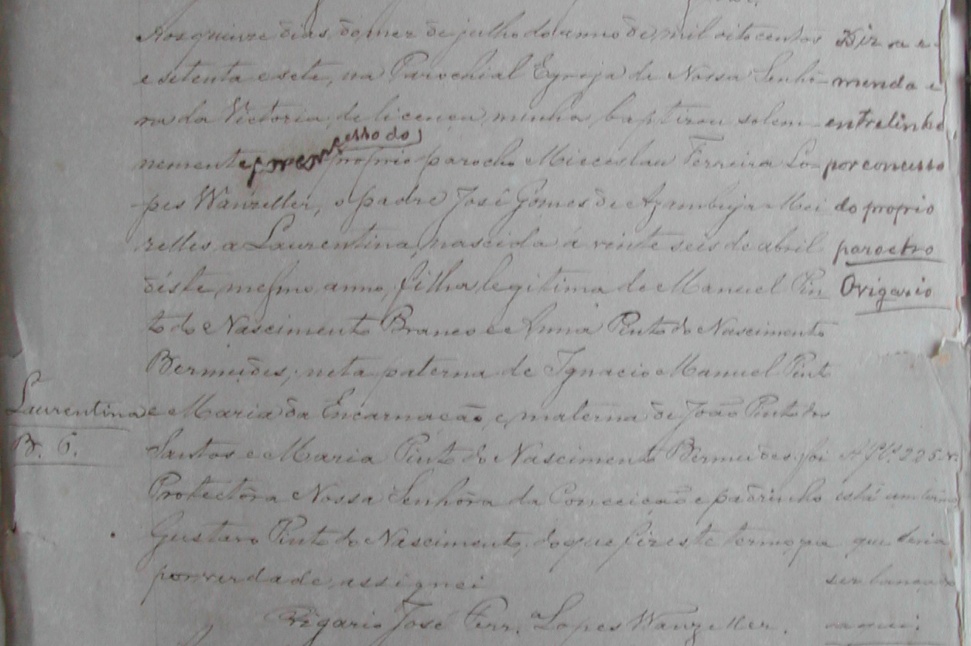 Aos quinze dias do mez de julho do anno de mil oito centos
e setenta e sete, na Parochial Egreja de Nossa Senhô-
ra da Victoria, de licença minha, baptizou solem-
nemente, por concesso do proprio parocho Miecesláu Ferreira Lo-
pes Wanzeller, o padre José Gomes de Azambuja Mei
relles a Laurentina, nascida á vinte seis de abril
dêste mesmo anno, filha legitima de Manuel Pin
to do Nascimento Branco e Anna Pinto do Nascimento
Bermudes; neta paterna de Ignacio Manuel Pinto
e Maria da Encarnacão e materna de João Pinto dos
Santos e Maria Pinto do Nascimento Bermudes; foi
Protectôra Nossa Senhôra da Conceição e padrinho
Gustavo Pinto do Nascimento, do que fiz este termo pa
por verdade assignei
Vigario José Ferr. Lopes Wanzeller.
Laurentina
B. 6.
Diz a e-
menda e
entrelinha
por concesso
do proprio
parocho
O vigario
A fl. 225 v.
está um termo
que devia
ser lançado
aqui.